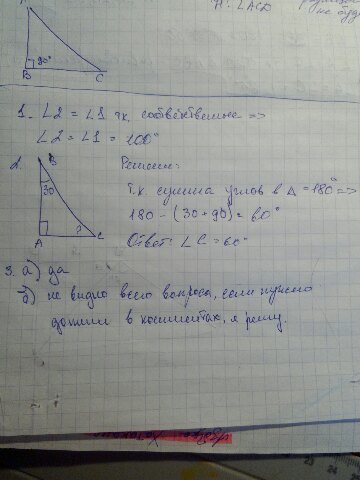 ∠ACD
не буд
B
90°
C
1. ∠2 = ∠1 т.к. соответственные =>
∠2 = ∠1 = 100°
2.
B
30
A
?
C
Решение:
Т.к. сумма углов в △ = 180° =>
180 - (30 + 90) = 60°
Ответ: ∠C = 60°
3. а) да
б) не видно всего вопроса, если нужно
допиши в комментах, я решу.
23 24